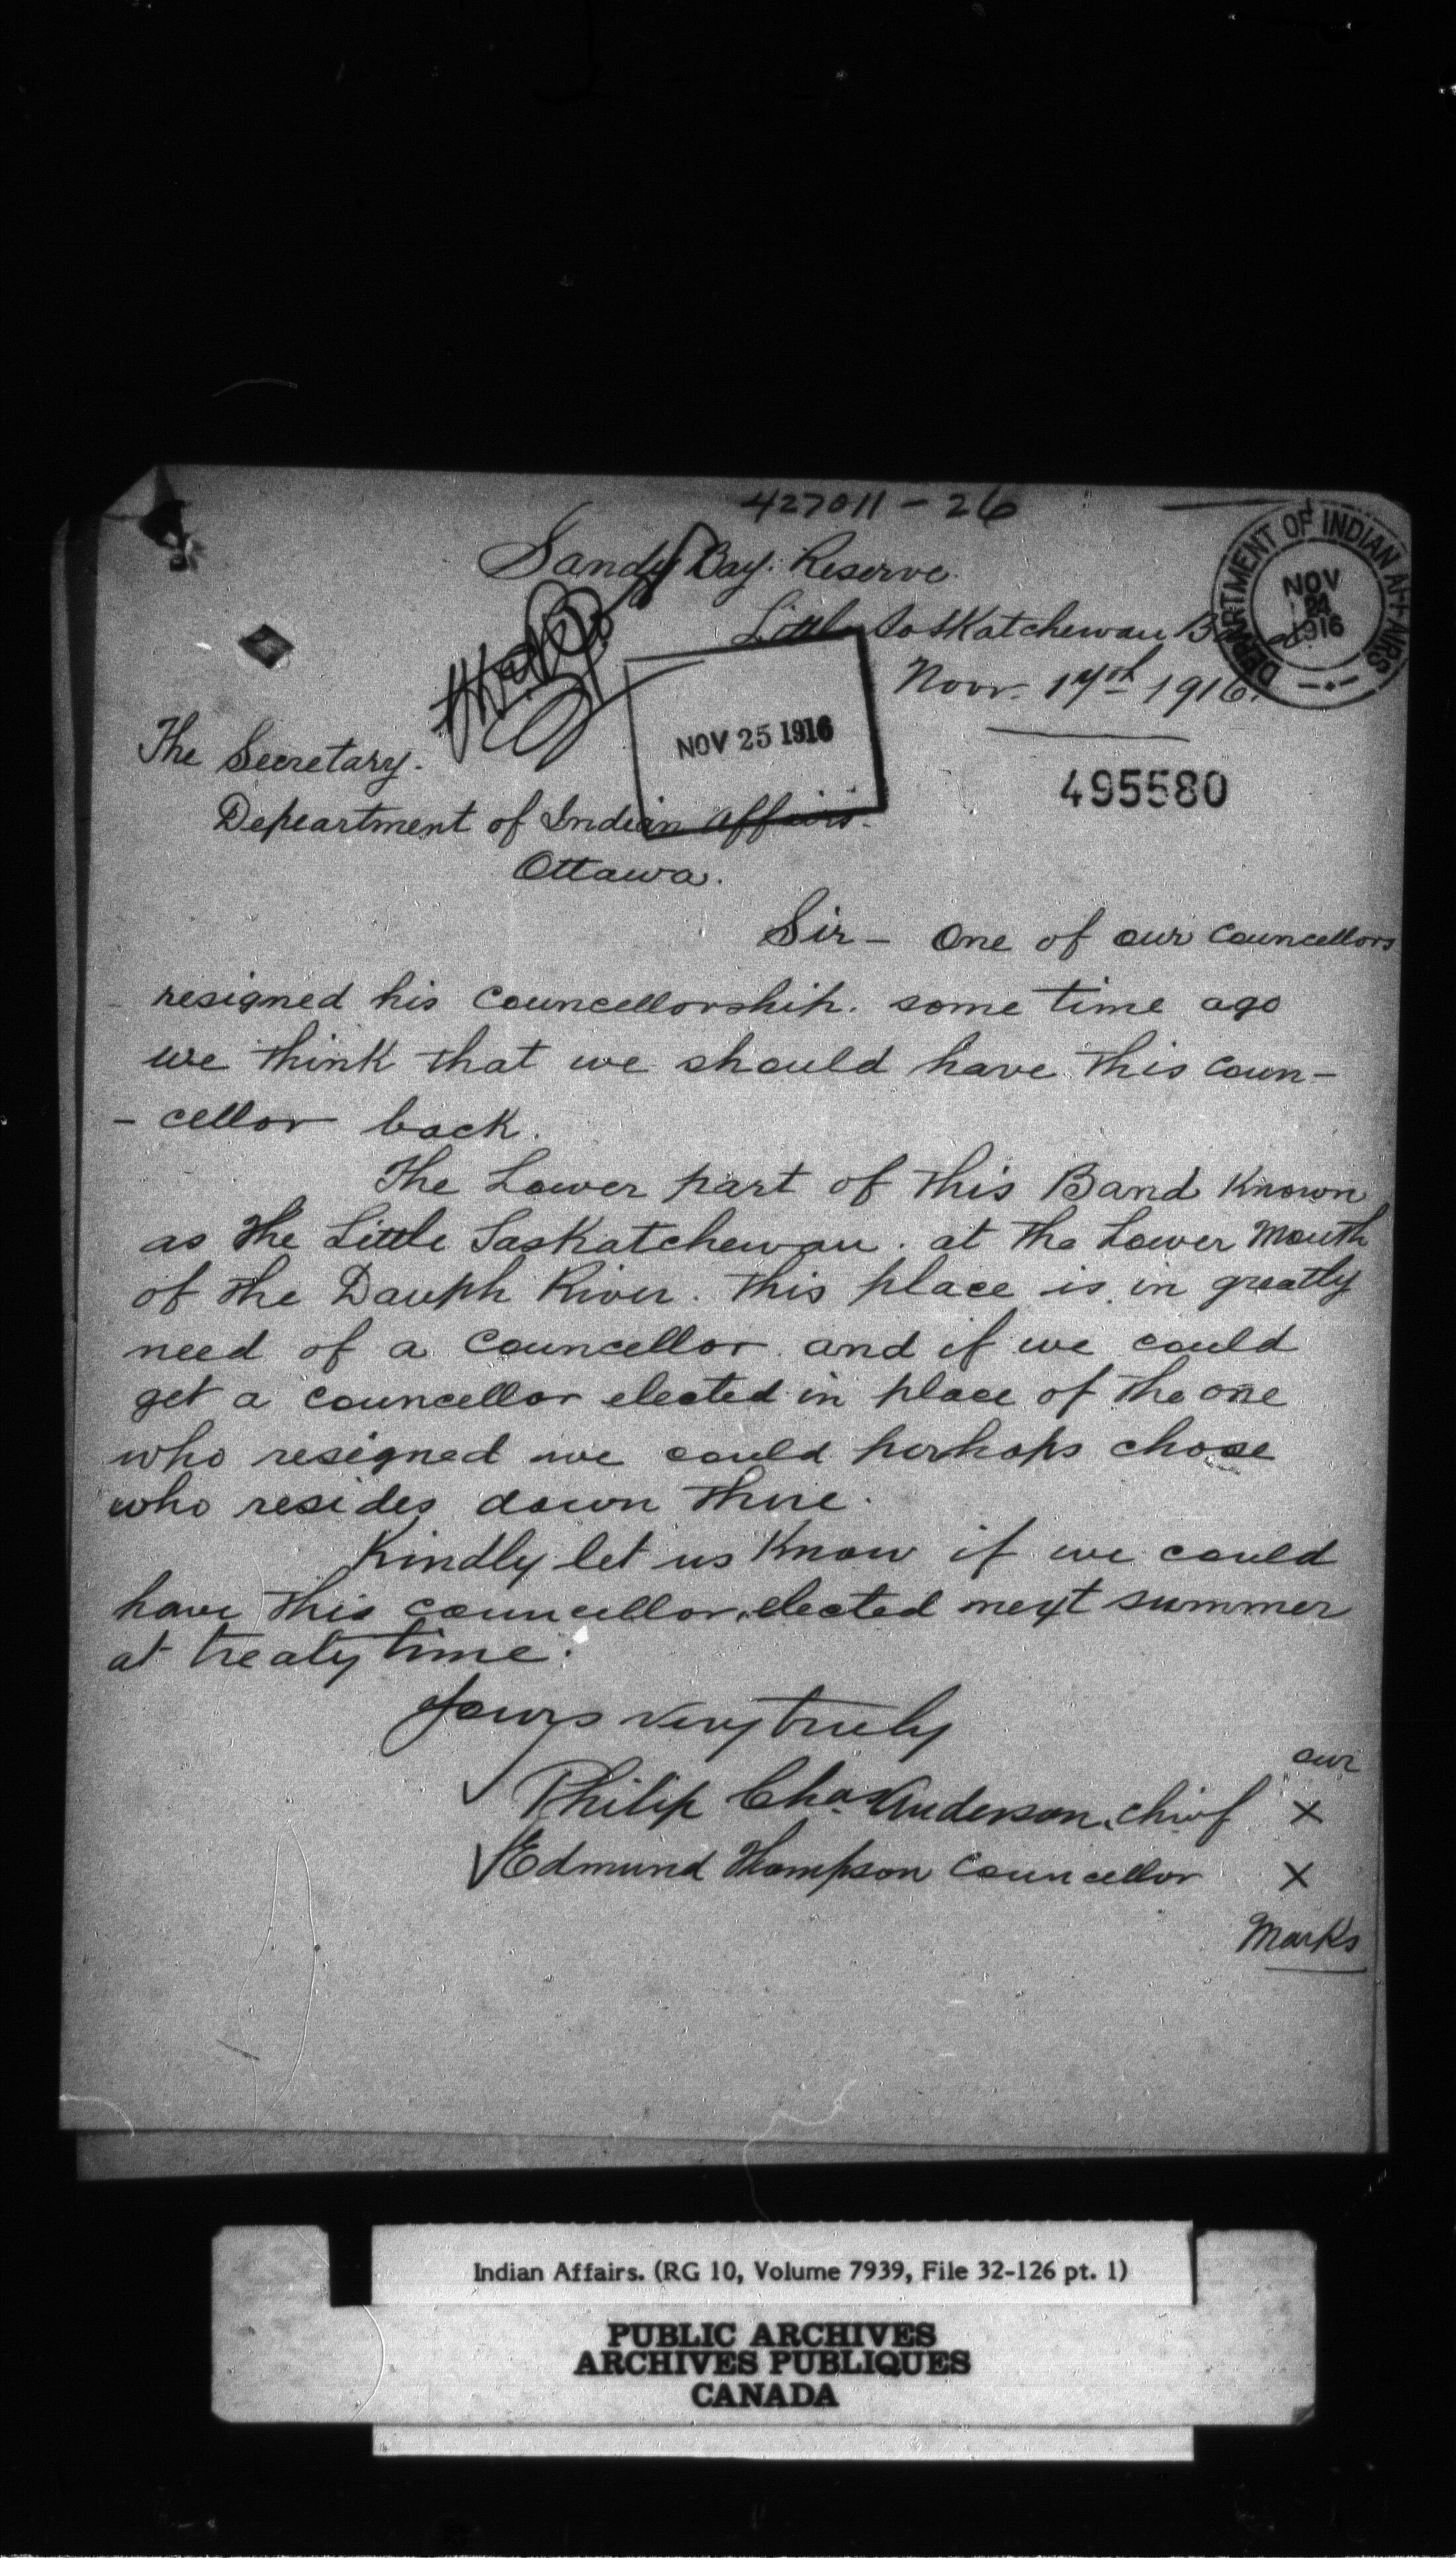 427011-26
Sandy Bay. Reserve.
Little Saskatchewan Band.
Novr. 17th 1916.
DEPARTMENT OF INDIAN AFFAIRS
NOV
24
1916
NOV 25 1916
495580
The Secretary.
Depeartment of Indian Affairs.
Ottawa.
Sir - One of our Councellors
resigned his Councellorship. some time ago
we think that we should have this coun-
- cellor back.
The Lower part of this Band Known
as the Little Saskatchewan. at the Lower Mouth
of the Dauph River. This place is in greatly
need of a Councellor and if we could
get a councellor elected in place of the one
who resigned we could perhaps chose
who resides down there.
Kindly let us Know if we could
have this councellor, elected next summer
at treaty time.
Yours very truely
Philip Chas Anderson, chief X
Edmund Thompson Councellor X
our
Marks
Indian Affairs. (RG 10, Volume 7939, File 32-126 pt. 1)
PUBLIC ARCHIVES
ARCHIVES PUBLIQUES
CANADA